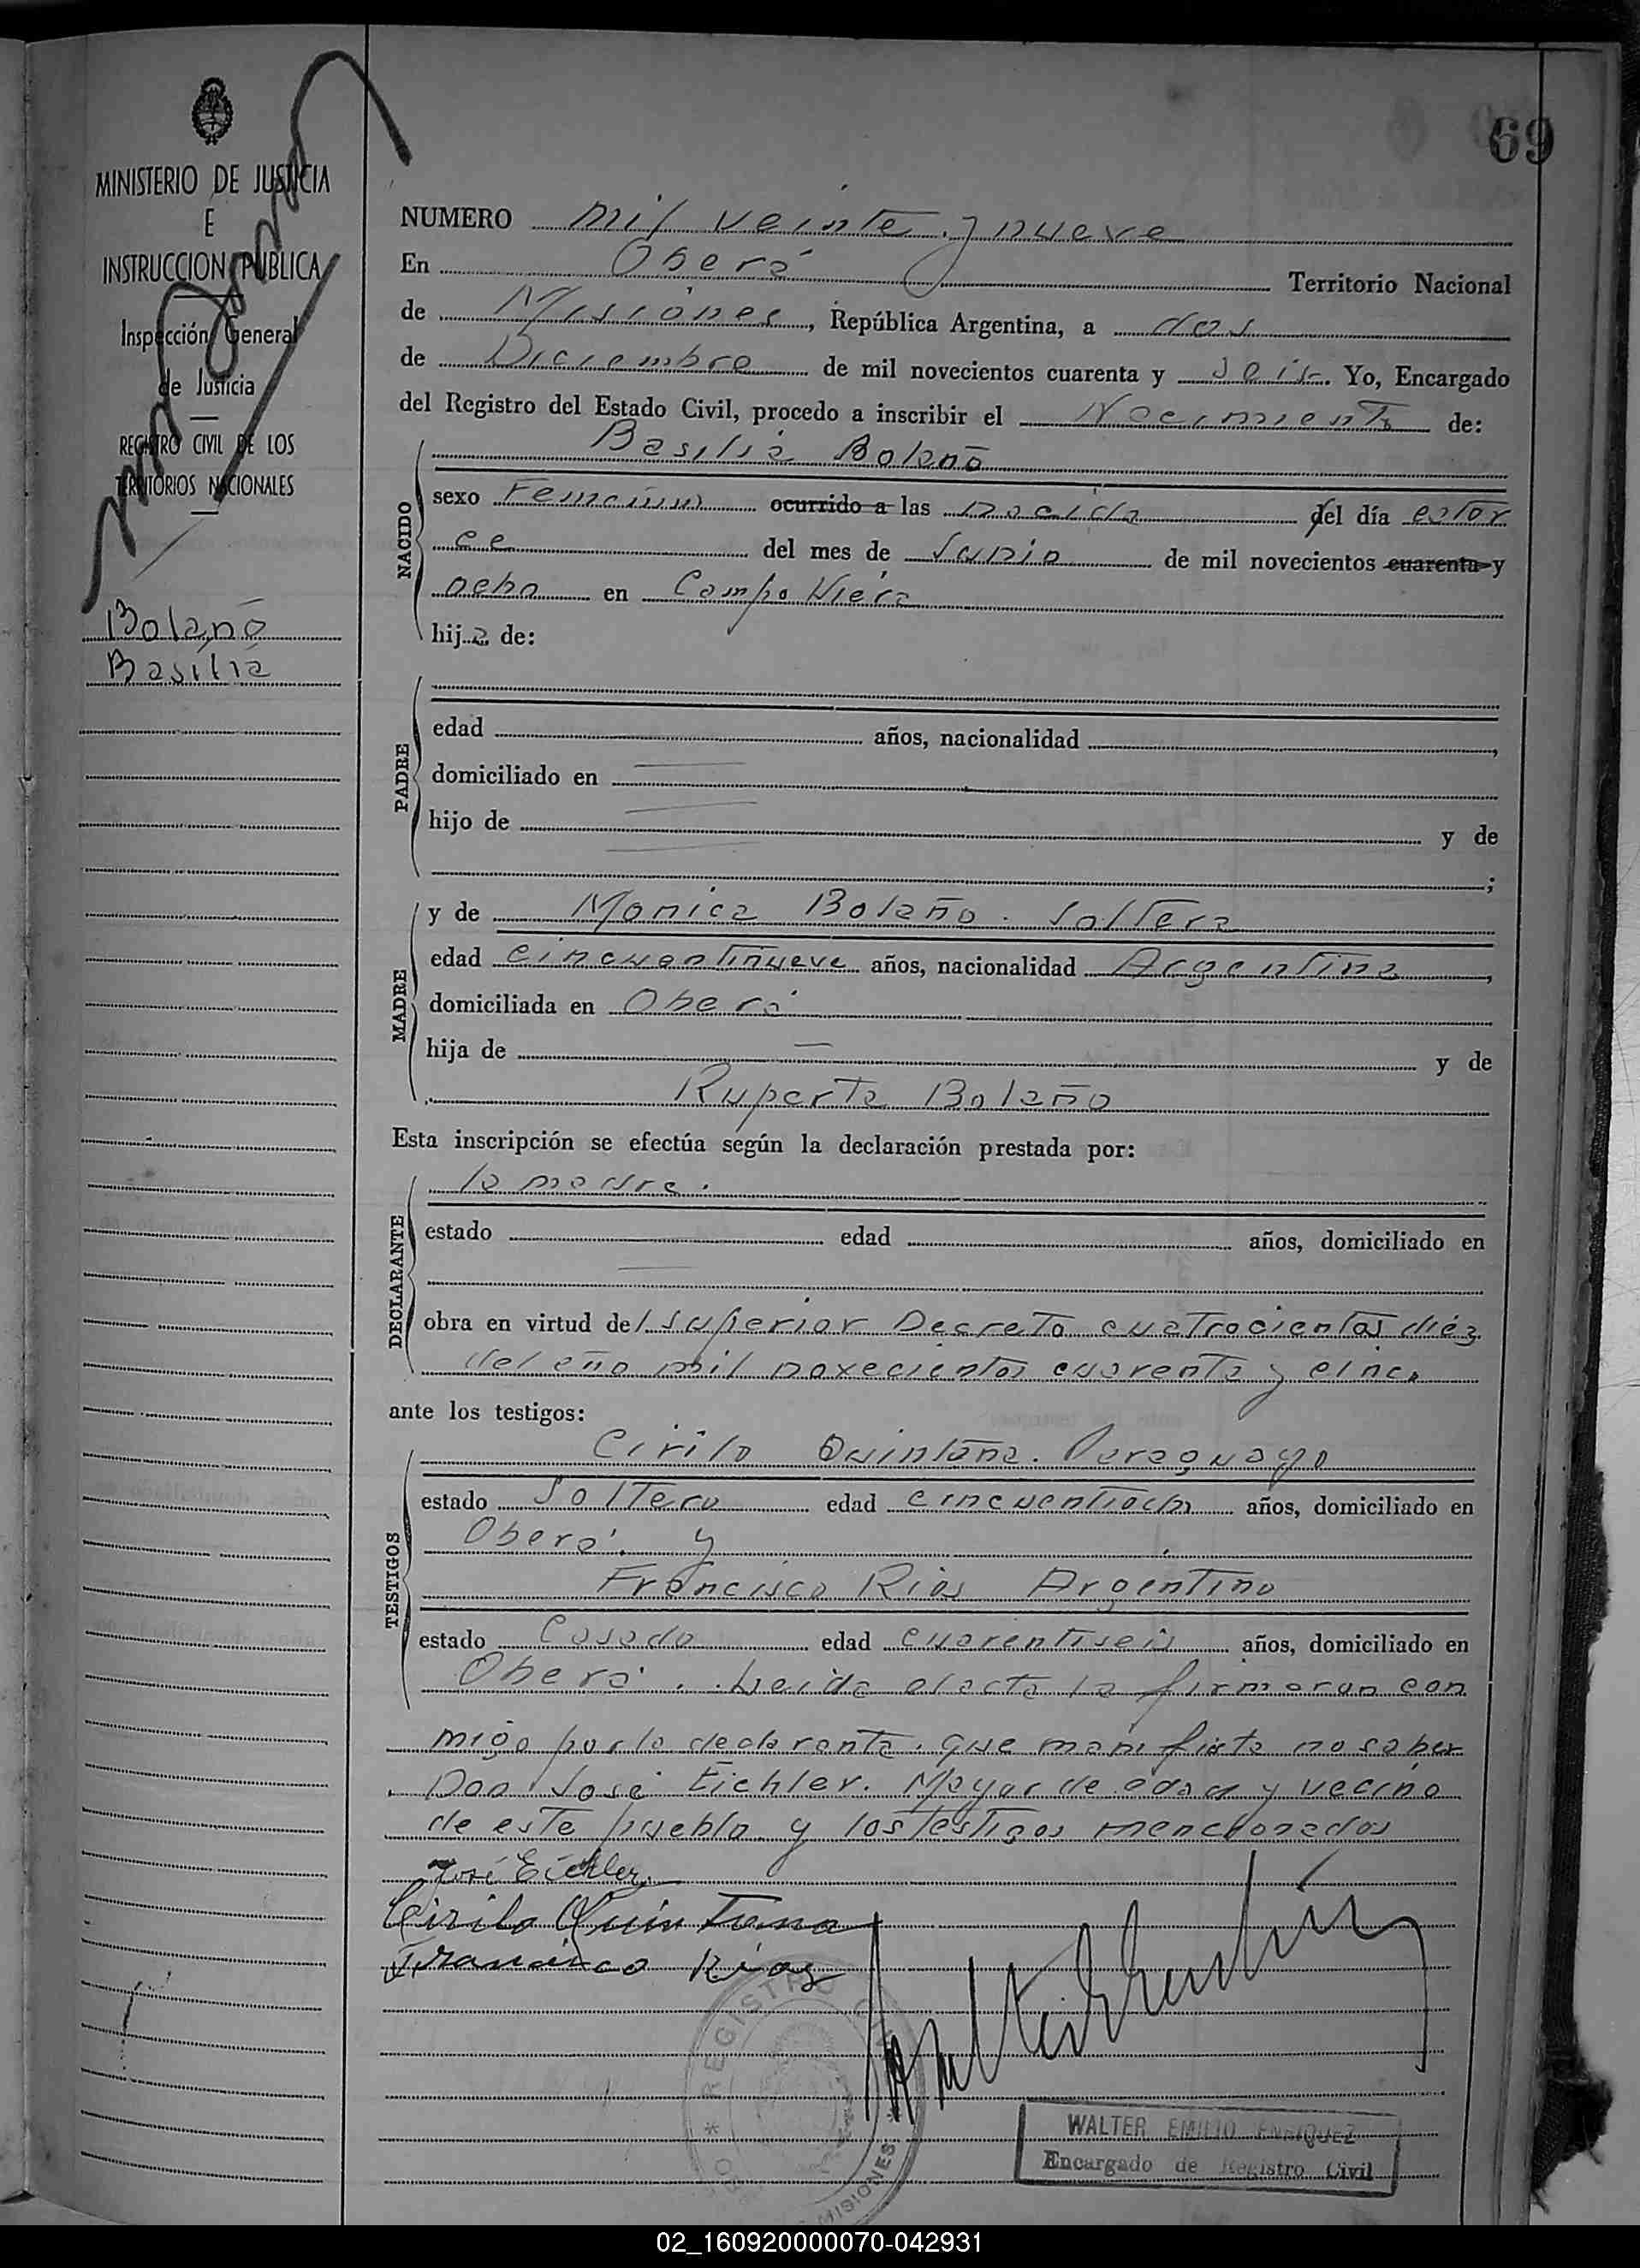 69
MINISTERIO DE JUSTICIA
E
INSTRUCCION PUBLICA
Inspección General
de Justicia
REGISTRO CIVIL DE LOS
TERRITORIOS NACIONALES
Bolaño
Basilia
NUMERO mil veinte y nueve
En Oberá Territorio Nacional
de Misiones, República Argentina, a dos
de Diciembre de mil novecientos cuarenta y seis. Yo, Encargado
del Registro del Estado Civil, procedo a inscribir el Nacimiento de:
Basilia Bolaño
NACIDO
sexo Femenino ocurrido a las nacida del día cator
ce del mes de Junio de mil novecientos cuarenta y
ocho en Campo Viera
hija de:
PADRE
edad años, nacionalidad ,
domiciliado en
hijo de y de
;
MADRE
y de Monica Bolaño. Soltera
edad cincuentinueve años, nacionalidad Argentina,
domiciliada en Oberá
hija de — y de
Ruperta Bolaño
Esta inscripción se efectúa según la declaración prestada por:
DECLARANTE
la madre.
estado edad años, domiciliado en
obra en virtud del superior Decreto cuatrocientos diéz
del año mil novecientos cuarenta y cinco
ante los testigos:
TESTIGOS
Cirilo Quintana. Paraguayo
estado Soltero edad cincuentiocho años, domiciliado en
Oberá. y
Francisco Rios Argentino
estado Casado edad cuarentiseis años, domiciliado en
Oberá. Leida el acta la firmaron con
migo por la declarante. que manifiesta no saber
Don José Eichler. Mayor de edad y vecino
de este pueblo y los testigos mencionados
José Eichler
Cirilo Quintana
Francisco Rios
REGISTRO
MISIONES
WALTER EMILIO ENRIQUEZ
Encargado de Registro Civil
02_160920000070-042931